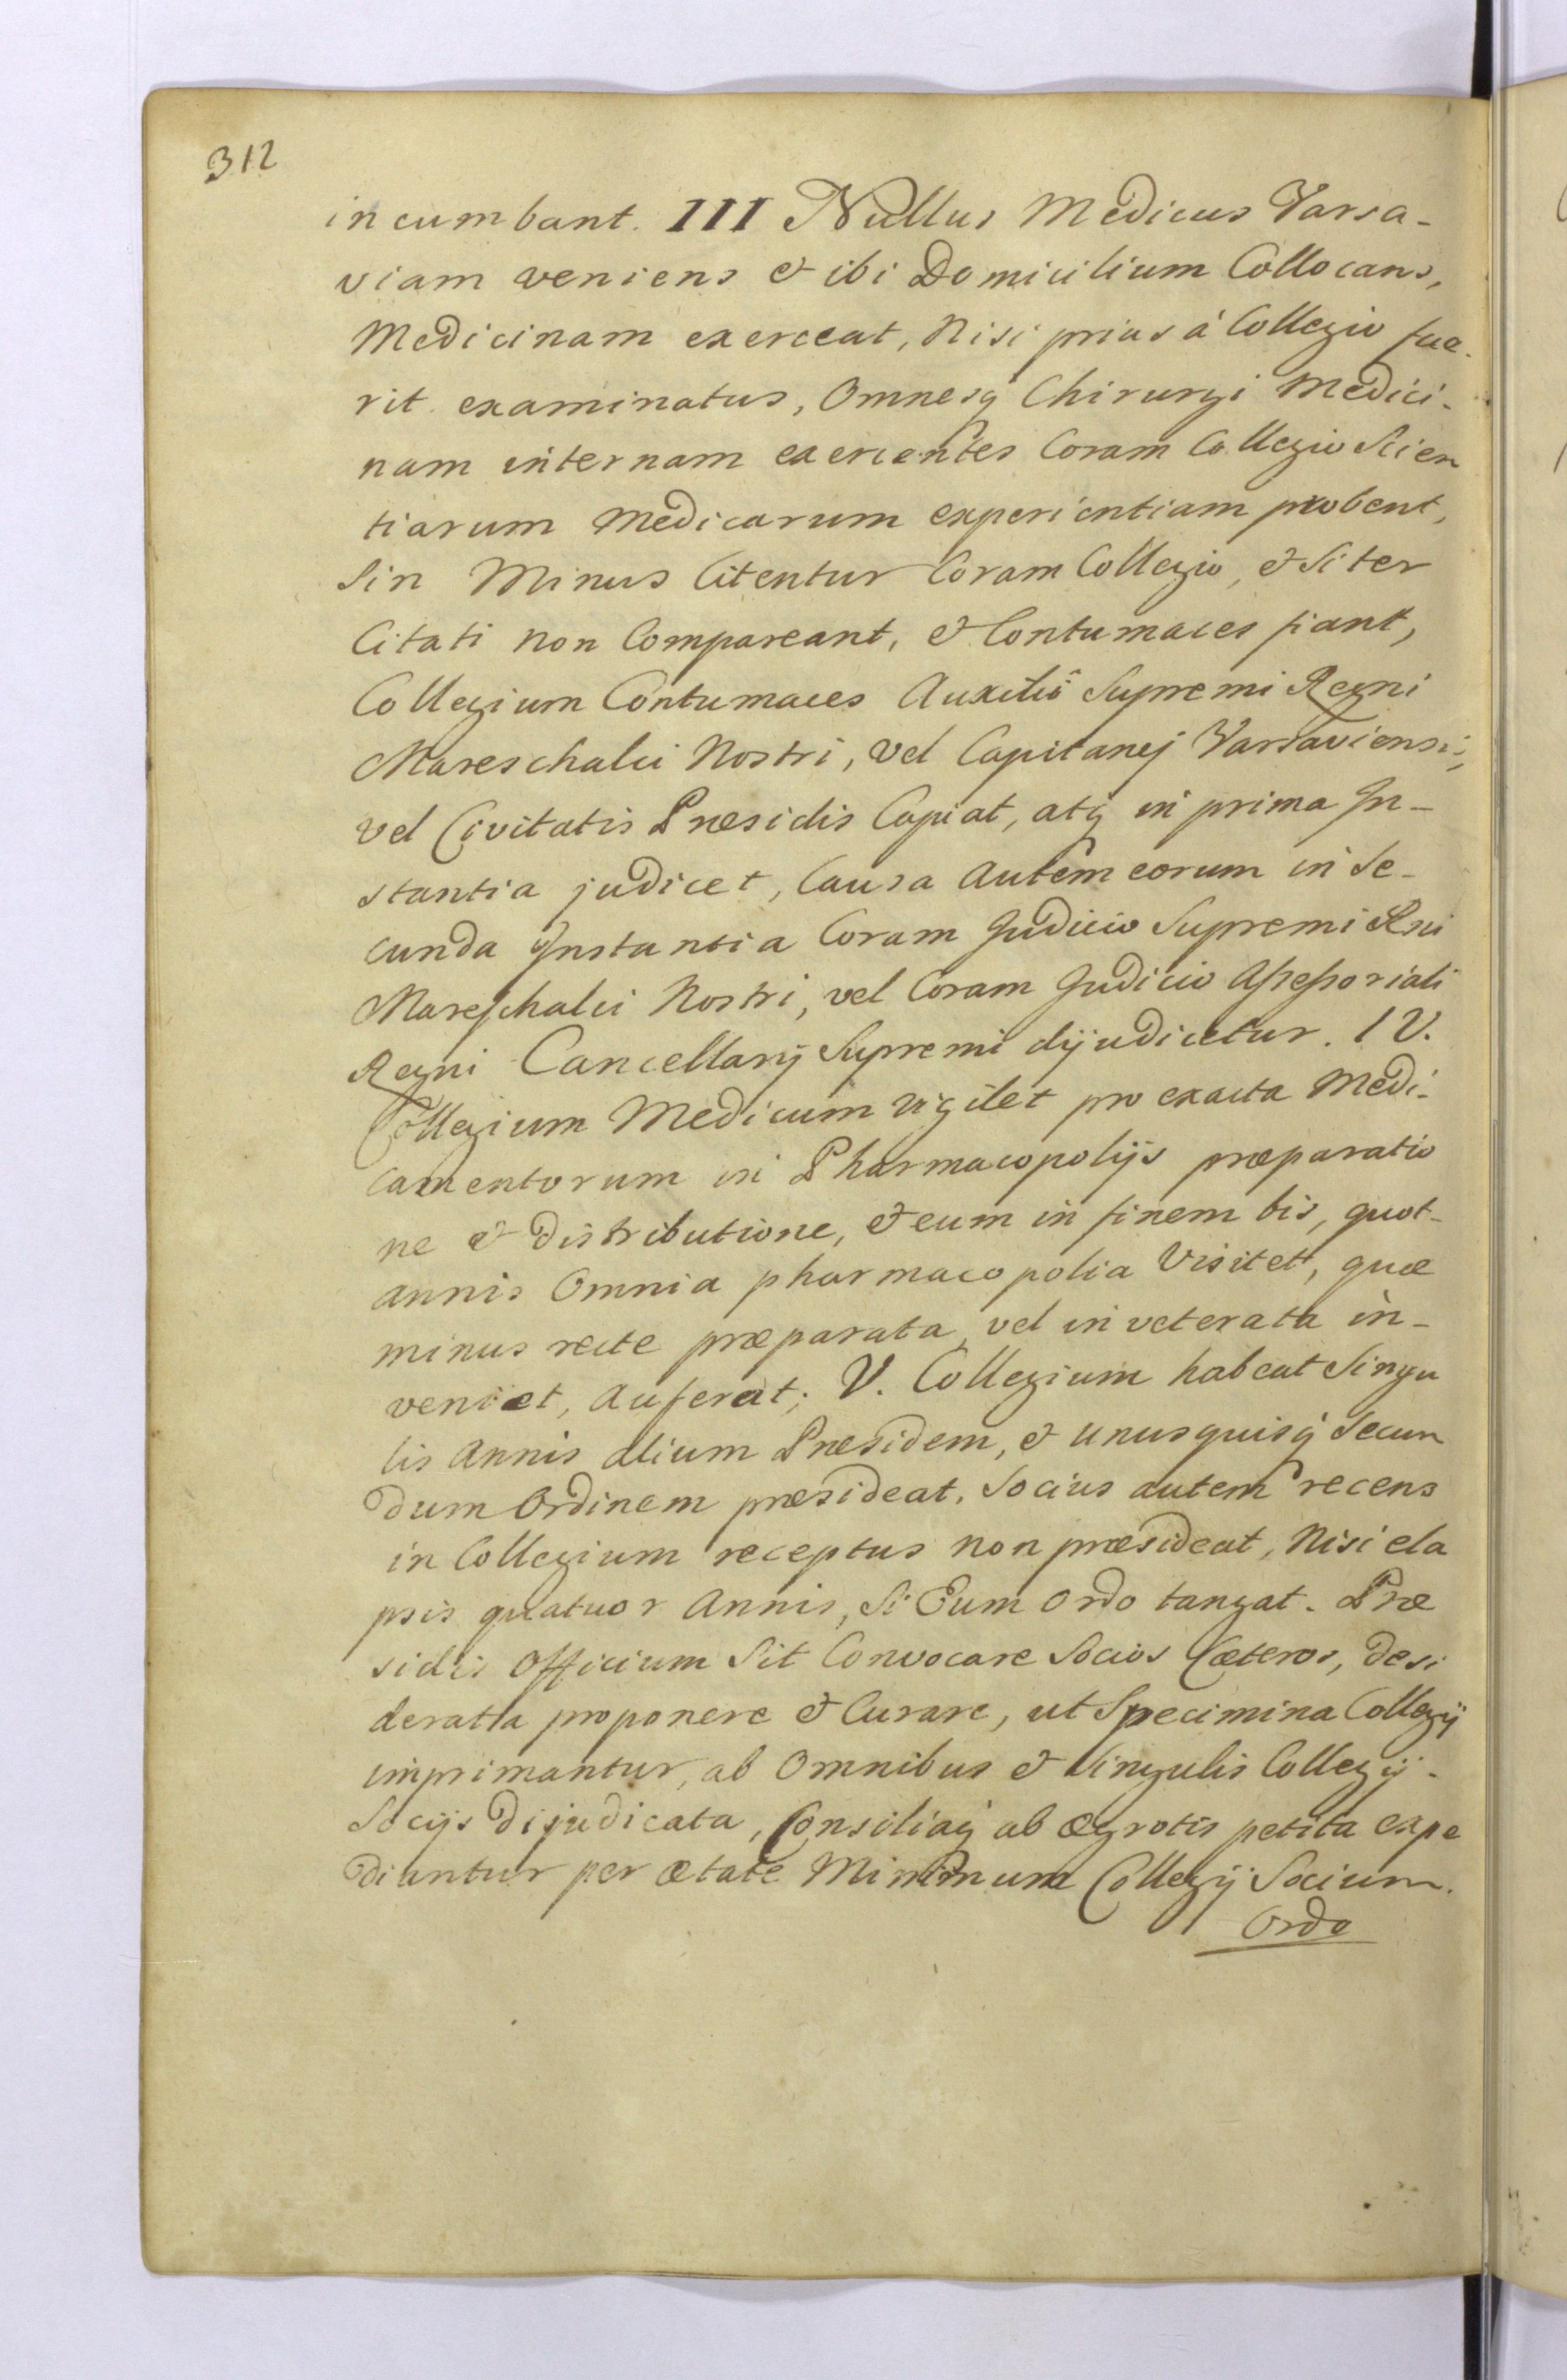 312
incumbant. III Nullus Medicus Varsa-
viam veniens & ibi Domicilium Collocans,
Medicinam exerceat, Nisi prius á Collegio fue-
rit examinatus, Omnesq Chirurgi Medici-
nam internam exercentes Coram Collegio Scien
tiarum Medicarum experientiam probent,
Sin Minus Citentur Coram Collegio, & Si ter
Citati non Compareant, & Contumaces fiant,
Collegium Contumaces Auxiliô Supremi Regni
Mareschalci Nostri, vel Capitanej Varsaviensis,
vel Civitatis Præsidis Capiat, atq in prima In-
stantia judicet, Causa Autem eorum in Se-
cunda Instantia Coram Judicio Supremi Rni
Mareschalci Nostri, vel Coram Judicio Assessoriali
Regni Cancellarij Supremi dijudicetur. IV.
Collegium Medicum vigilet pro exacta Medi-
camentorum in Pharmacopolijs præparatio
ne & Distributione, & eum in finem bis, quot-
annis Omnia pharmacopolia Visitet, quæ
minus recte præparata, vel inveterata in-
veniet, Auferat; V. Collegium habeat Singu
lis Annis alium Præsidem, & unusquisq Secun
dum Ordinem præsideat. Socius autem recens
in Collegium receptus non præsideat, Nisi ela
psis quatuor Annis, Si Eum Ordo tangat. Præ
sidis Officium Sit Convocare Socios Cæteros, Desi
derata proponere & Curare, ut Specimina Collegij
imprimantur, ab Omnibus & Singulis Collegij-
Socijs Dijudicata, Consiliaq ab ægrotis petita expe
diantur per ætate Minimum Collegij Socium.
Ordo